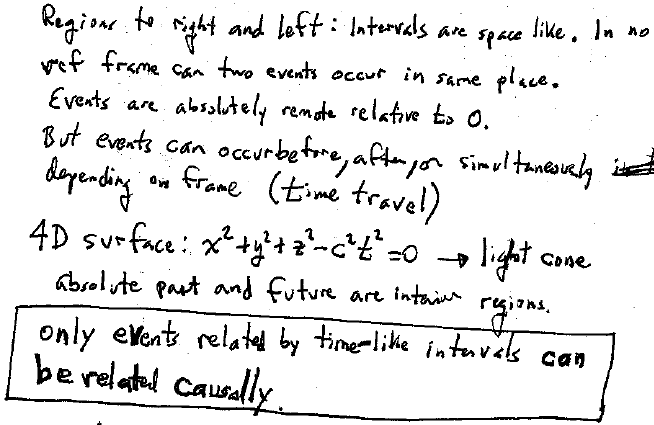 Regions to right and left: Intervals are space like. In no
ref frame can two events occur in same place.
Events are absolutely remote relative to O.
But events can occur before, after, or simultaneously
depending on frame (time travel)
4D surface: x²+y²+z²-c²t²=0 → light cone
absolute past and future are interior regions.
only events related by time-like intervals can
be related causally.